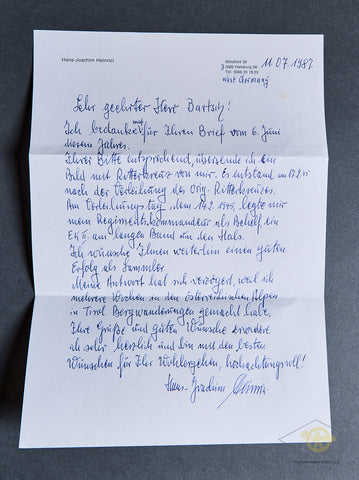 Hans-Joachim Heinrici
2000 Hamburg 56
West Germany
11.07.1987
Sehr geehrter Herr Bartsch!
Ich bedanke mich für Ihren Brief vom 6. Juni
diesen Jahres.
Ihrer Bitte entsprechend, übersende ich ein
Bild mit Ritterkreuz von mir. Es entstand am
nach der Verleihung des Orig. Ritterkreuzes.
Am Verleihungstag, dem 1945, legte mir
mein Regimentskommandeur als Behelf ein
EK II. am langen Band um den Hals.
Ich wünsche Ihnen weiterhin einen guten
Erfolg als Sammler.
Meine Antwort hat sich verzögert, weil ich
mehrere Wochen in den österreichischen Alpen
in Tirol Bergwanderungen gemacht habe.
Ihre Grüße und guten Wünsche erwidere
ich sehr herzlich und bin mit den besten
Wünschen für Ihr Wohlergehen, hochachtungsvoll!
Hans-Joachim